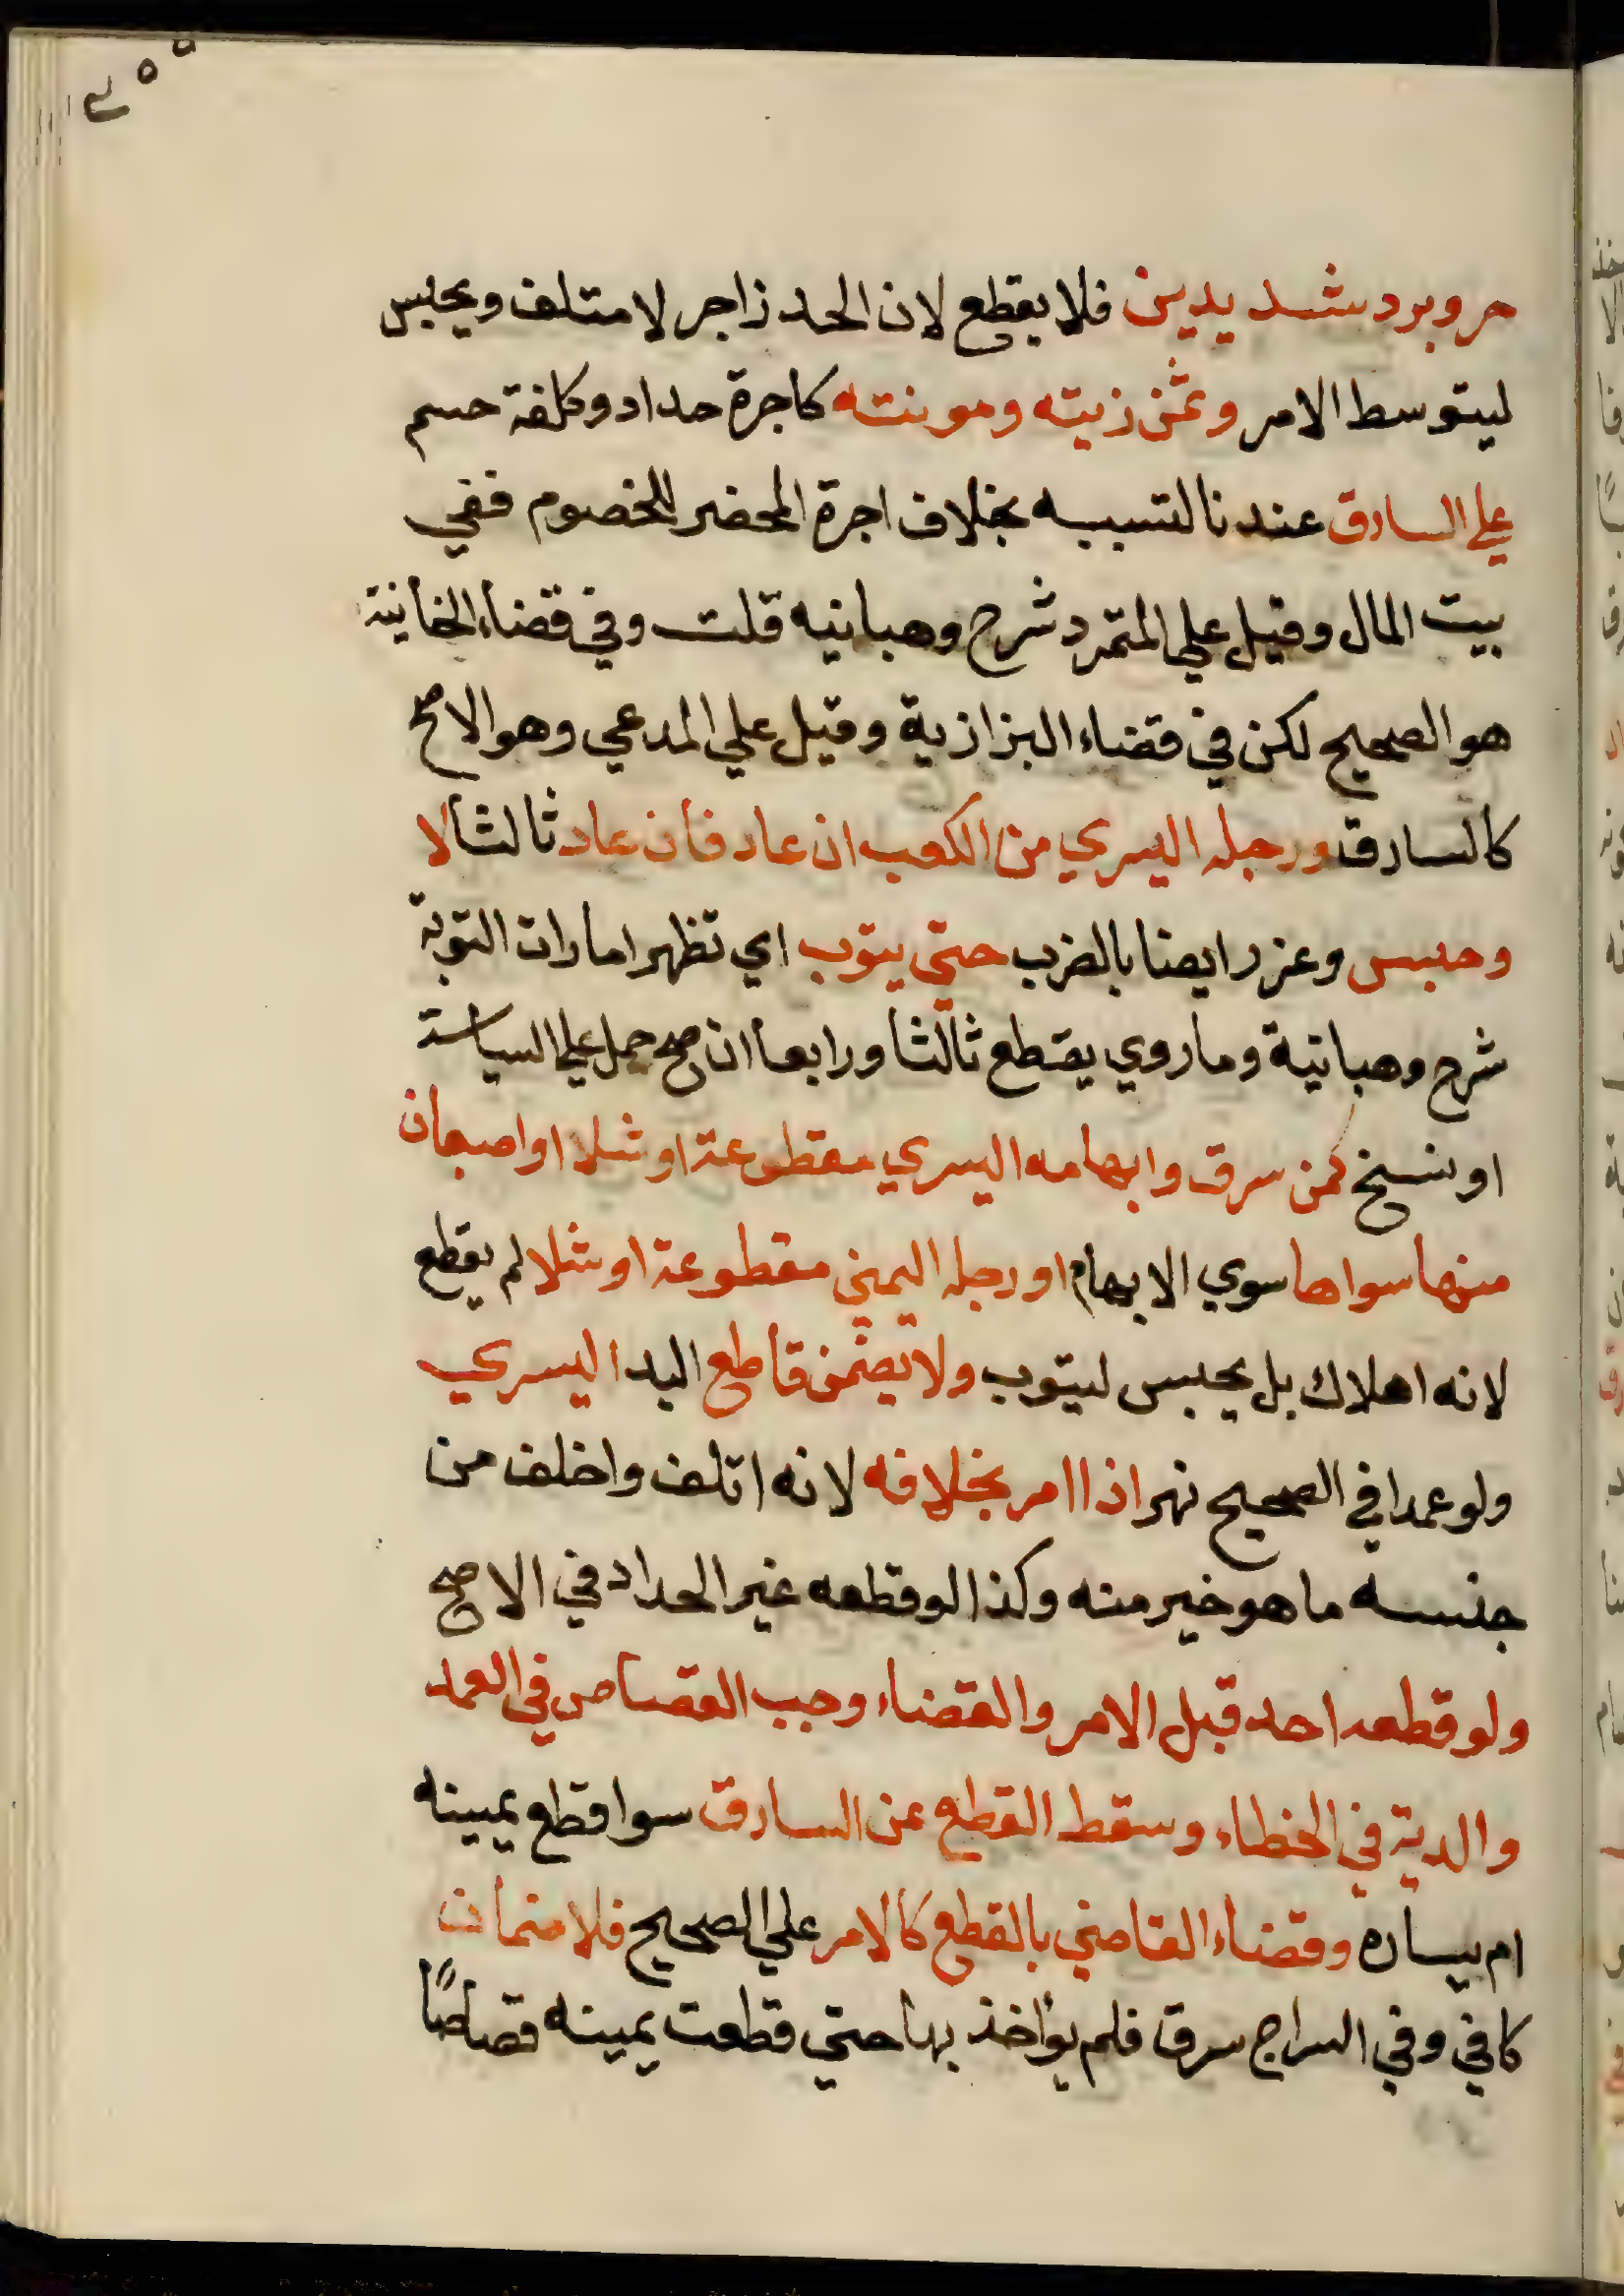 حر وبرد شديدين فلا يقطع لان الحد زاجر لا متلف ويحبس
ليتوسط الامر وثمن زيته ومونته كاجرة حداد وكلفة حسم
علي السارق عندنا لتسببه بخلاف اجرة المحضر للخصوم ففي
بيت المال وقيل علي المتمرد شرح وهبانيه قلت وفي قضاء الخانية
هو الصحيح لكن في قضاء البزازية وقيل علي المدعي وهو الاصح
كالسارق ورجله اليسري من الكعب ان عاد فان عاد ثالثا لا
وحبس وعزر ايضا بالضرب حتي يتوب اي تظهر امارات التوبة
شرح وهبانية وما روي يقطع ثالثا ورابعا ان صح حمل علي السياسة
او نسخ كمن سرق وابهامه اليسري مقطوعة او شلا او اصبعان
منها سواها سوي الابهام او رجله اليمني مقطوعة او شلا لم يقطع
لانه اهلاك بل يحبس ليتوب ولا يضمن قاطع اليد اليسري
ولو عمدا في الصحيح نهر اذا امر بخلافه لانه اتلف واخلف من
جنسه ما هو خير منه وكذا لو قطعه غير الحداد في الاصح
ولو قطعه احد قبل الامر والقضاء وجب القصاص في العمد
والدية في الخطاء وسقط القطع عن السارق سوا قطع يمينه
ام يساره وقضاء القاضي بالقطع كالامر علي الصحيح فلا ضمان
كافي وفي السراج سرق فلم يؤاخذ بها حتي قطعت يمينه قصاصًا